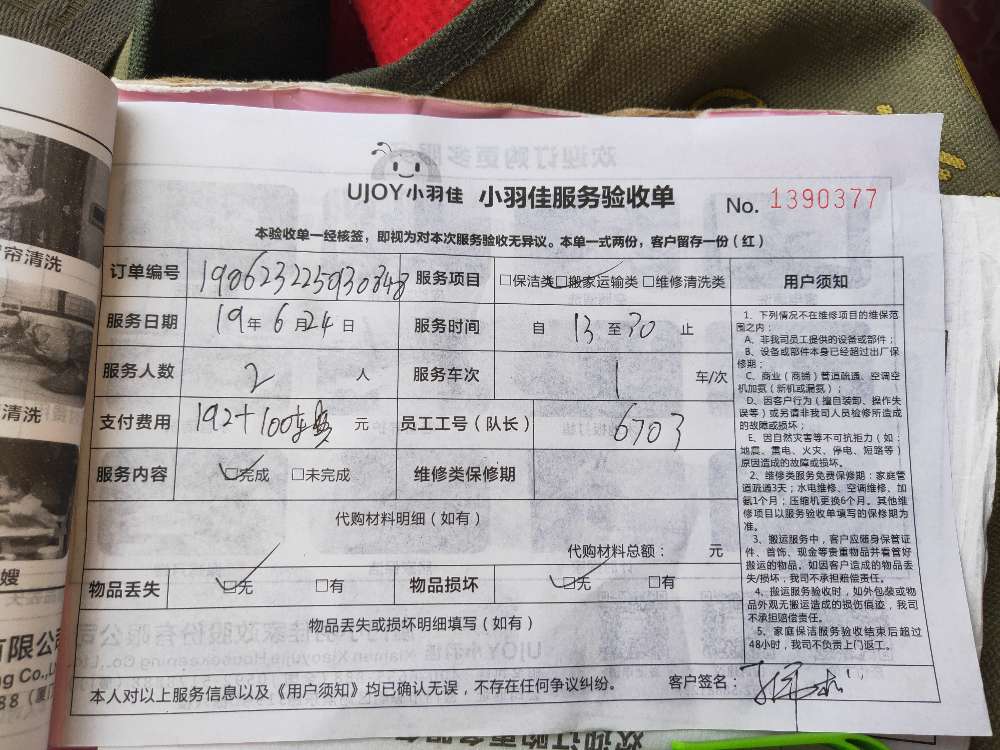 UJOY小羽佳 小羽佳服务验收单 No. 1390377
本验收单一经核签，即视为对本次服务验收无异议。本单一式两份，客户留存一份（红）
订单编号 190623225930848 服务项目 □保洁类 □搬家运输类 □维修清洗类
服务日期 19年6月24日 服务时间 自 13 至 30 止
服务人数 2 人 服务车次 1 车/次
支付费用 192+100 元 员工工号（队长） 6703
服务内容 □完成 □未完成 维修类保修期
代购材料明细（如有）
代购材料总额： 元
物品丢失 □无 □有 物品损坏 □无 □有
物品丢失或损坏明细填写（如有）
本人对以上服务信息以及《用户须知》均已确认无误，不存在任何争议纠纷。 客户签名：
用户须知
1、下列情况不在维修项目的维保范
围之内：
A、非我司员工提供的设备或部件；
B、设备或部件本身已经超过出厂保
修期；
C、商业（商铺）管道疏通、空调空
机加氨（新机或漏氨）；
D、因客户行为（擅自装卸、操作失
误等）或另请非我司人员检修所造成
的故障或损坏；
E、因自然灾害等不可抗拒力（如：
地震、雷电、火灾、停电、短路等）
原因造成的故障或损坏。
2、维修类服务免费保修期：家庭管
道疏通3天；水电维修、空调维修、加
氨1个月；压缩机更换6个月。其他维
修项目以服务验收单填写的保修期为
准。
3、搬运服务中，客户应随身保管证
件、首饰、现金等贵重物品并看管好
搬运的物品。如因客户造成的物品丢
失/损坏，我司不承担赔偿责任。
4、搬运服务验收时，如外包装或物
品外观无搬运造成的损伤痕迹，我司
不承担赔偿责任。
5、家庭保洁服务验收结束后超过
48小时，我司不负责上门返工。
帘清洗
清洗
嫂
有限公司
ng Co.,L
88（厦门